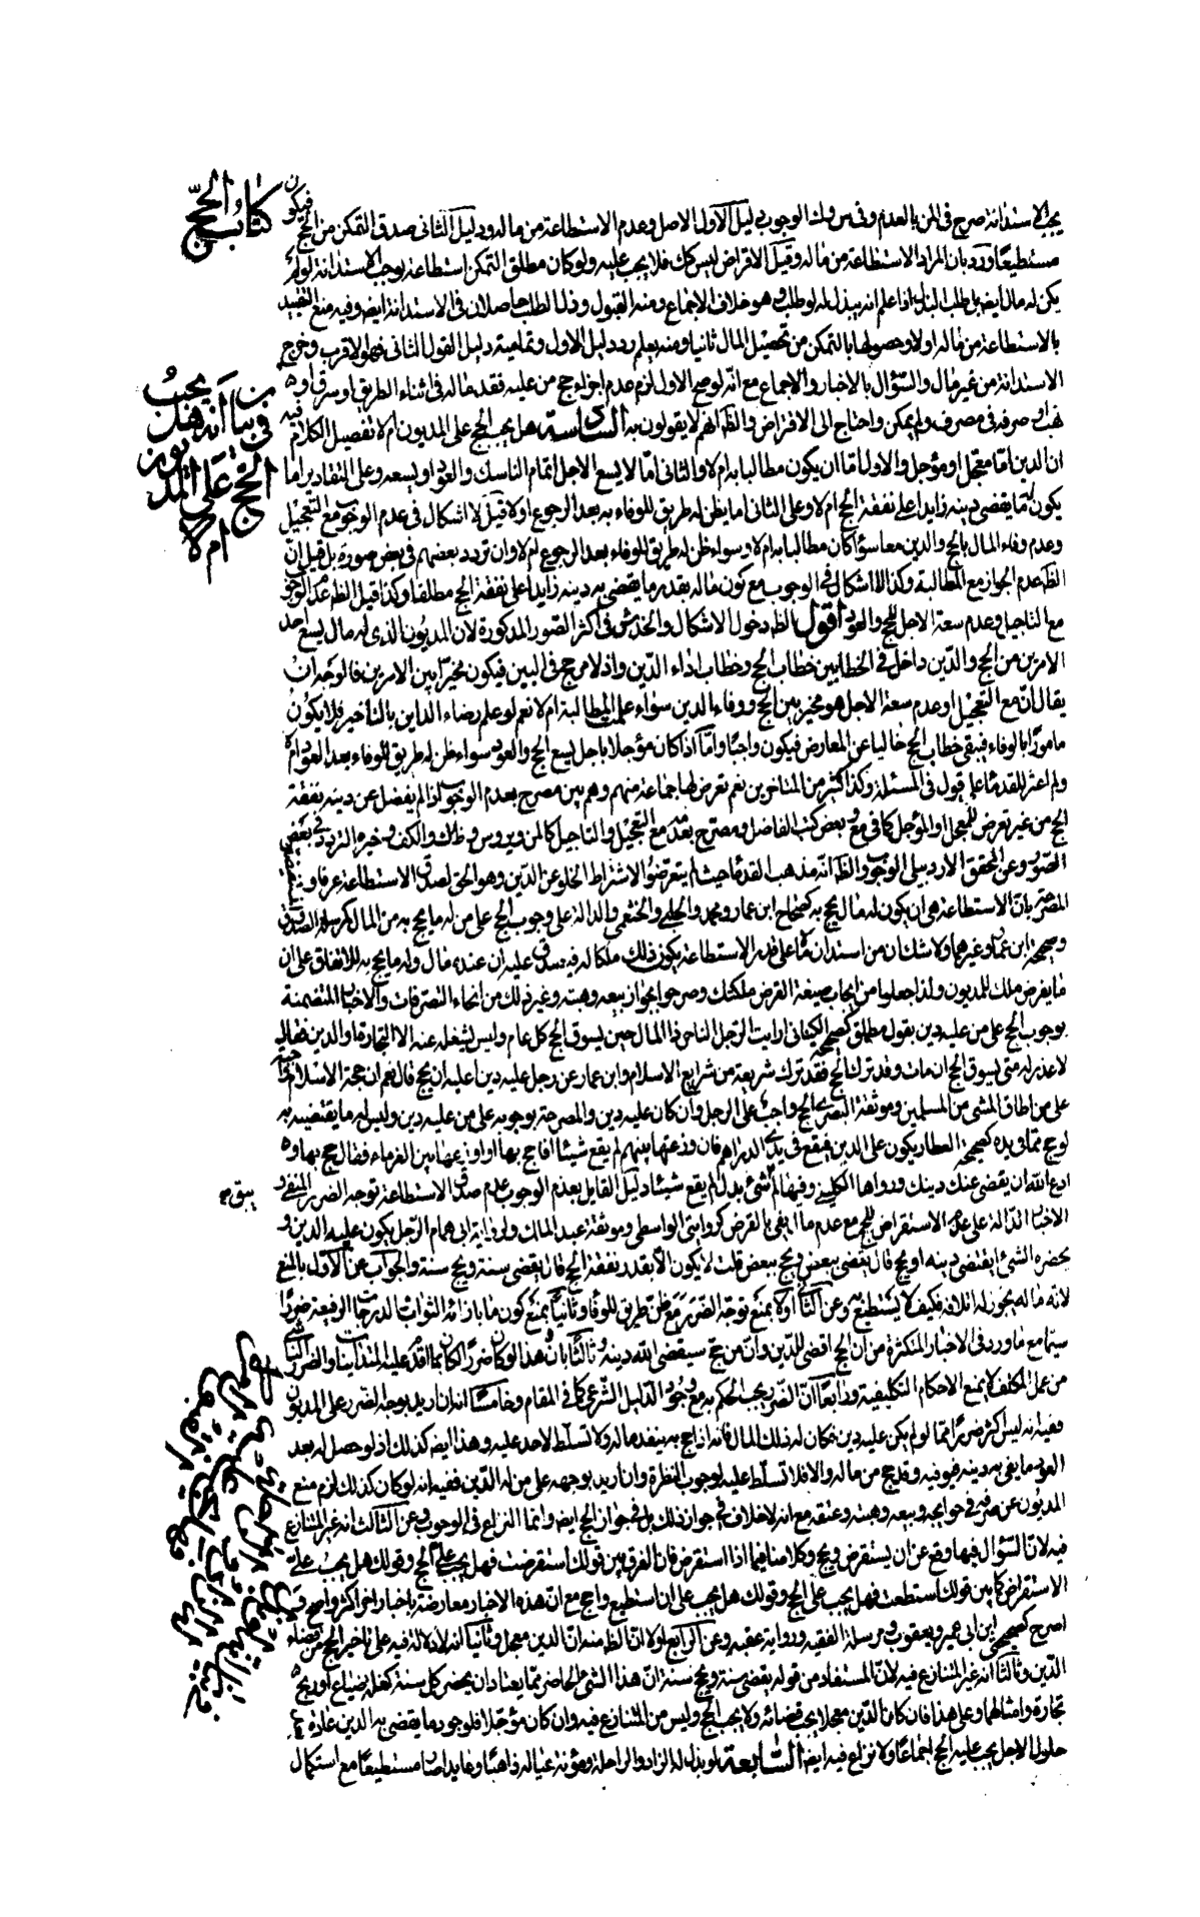 كتاب الحج
يجب الاستدانة صرح في المن بالعدم وفي س وك الوجوب دليل الاول الاصل وعدم الاستطاعة من ماله ودليل الثاني صدق التمكن من الحج فيكون
مستطيعا ورد بان المراد الاستطاعة من ماله وقيل الاقراض ليس كك فلا يجب عليه ولو كان مطلق التمكن استطاعة لوجب الاستدانة لو لم
يكن له مال ايضا بل طلب البذل اذا علم انه يبذل له لو طلب وهو خلاف الاجماع ومنه القبول وذل الطلب حاصلان في الاستدانة ايضا وفيه منع التقييد
بالاستطاعة من ماله اولا وحصولها بالتمكن من تحصيل المال ثانيا ومنه يعلم رد دليل الاول وتمامية دليل القول الثاني فهو الاقرب وخرج
الاستدانة من غير مال والسؤال بالاخبار والاجماع مع انه لو صح الاول لزم عدم اجزاء حج من عليه فقد ماله في اثناء الطريق او سرق او
نهب او صرفه في مصرف ولم يمكن واحتاج الى الاقتراض والظ انهم لا يقولون به السادسة هل يجب الحج على المديون ام لا تفصيل الكلام فيه
ان الدين اما معجل او مؤجل والاول اما ان يكون مطالبا به ام لا والثاني اما لا يسع الاجل اتمام المناسك والعود او يسعه وعلى التقادير اما
يكون ما يقضى دينه زايدا على نفقة الحج ام لا وعلى الثاني اما يظن له طريق للوفاء به بعد الرجوع او لا قيل لا اشكال في عدم الوجوب مع التعجيل
وعدم وفاء المال بالحج والدين معا سواء كان مطالبا به ام لا وسواء ظن له طريق للوفاء بعد الرجوع ام لا وان تردد بعضهم في بعض صوره بل قيل ان
الظ عدم الجواز مع المطالبة وكذا لا اشكال في الوجوب مع كون ماله بقدر ما يقضى به دينه زايدا على نفقة الحج مطلقا وكذا قيل الظ عدم الوجوب
مع التاجيل وعدم سعة الاجل للحج والعود اقول الظ دخول الاشكال والخدش في اكثر الصور المذكورة لان المديون الذي له مال يسع احد
الامرين من الحج والدين داخل في الخطابين خطاب الحج وخطاب اداء الدين واذ لا مرجح في البين فيكون مخيرا بين الامرين فالوجه ان
يقال ان مع التعجيل او عدم سعة الاجل هو مخير بين الحج ووفاء الدين سواء علمت المطالبة ام لا نعم لو علم رضاء الداين بالتاخير فلا يكون
مامورا بالوفاء فيبقى خطاب الحج خاليا عن المعارض فيكون واجبا واما اذا كان مؤجلا باجل يسع الحج والعود سواء ظن له طريق للوفاء بعد العود ام لا
ولم اعثر للقدماء على قول في المسئلة وكذا كثير من المتاخرين نعم تعرض لها جماعة منهم وهم بين مصرح بعدم الوجوب اذا لم يفضل عن دينه نفقة
الحج من غير تعرض للمعجل او المؤجل كما في مع وبعض كتب الفاضل ومصرح بعدمه مع التعجيل والتاجيل كالمن وير وس وظ ك والكف وخيره التردد في بعض
الصور وعن المحقق الاردبيلي الوجوب والظ انه مذهب القدماء حيث لم يتعرضوا لاشتراط الخلو عن الدين وهو الحق لصدق الاستطاعة عرفا و
المصرحة بان الاستطاعة هي ان يكون له مال يحج به كصحاح ابن عمار ومحمد والحلبي والخثعمي والدالة على وجوب الحج على من له ما يحج به من المال كمرسلة الصدوق
وصحيحة ابن عمار وغيرهما ولا شك ان من استدان مالا على قدر الاستطاعة يكون ذلك ملكا له فيصدق عليه ان عنده مال وله ما يحج به للاتفاق على ان
ما يقرض ملك للمديون ولذا جعلوا من ايجاب صيغة القرض ملكتك وصرحوا بجواز بيعه وهبته وغير ذلك من انحاء التصرفات والاخبار المتضمنة
بوجوب الحج على من عليه دين بقول مطلق كصحيحة الكناني ارايت الرجل التاجر ذا المال حين يسوف الحج كل عام وليس يشغله عنه الا التجارة او الدين فقال
لا عذر له متى يسوف الحج ان مات وقد ترك الحج فقد ترك شريعة من شرايع الاسلام وابن عمار عن رجل عليه دين اعليه ان يحج قال نعم ان حجة الاسلام واجبة
على من اطاق المشي من المسلمين وموثقة البصري الحج واجب على الرجل وان كان عليه دين والمصرحة بوجوبه على من عليه دين وليس له ما يقتضيه به
لو حج بما في يده كصحيحة العطار يكون على الدين فيقع في يدي الدراهم فان وزعتها بينهم لم يقع شيئا افاحج بها او اوزعها بين الغرماء فقال حج بها و
ادع الله ان يقضى عنك دينك ورواها الكليني وفيها لم يبق شئ بدل لم يقع شيئا دليل القايل بعدم الوجوب عدم صدق الاستطاعة توجه الضرر المنفي و
الاخبار الدالة على عدم الاستقراض للحج مع عدم ما يفى بالقرض كروايتي الواسطي وموثقة عبد الملك ولرواية ابي همام الرجل يكون عليه الدين و
يحضره الشئ ايقضى دينه او يحج قال يقضى ببعض ويحج ببعض قلت لا يكون الا بقدر نفقة الحج قال يقضى سنة ويحج سنة والجواب عن الاول بالمنع
لانه ماله يجوز له اتلافه فكيف لا يستطيع به وعن الثاني اولا بمنع توجه الضرر مع ظن طريق للوفاء وثانيا بمنع كون ما بازائه الثواب والدرجات الرفيعة ضررا
سيما مع ما ورد في الاخبار المتكثرة من ان الحج اقضى للدين وان من حج سيقضى الله دينه وثالثا بان هذا لو كان ضررا لكان بما اقدم عليه المتداينان والضرر الناشي
من عمل المكلف لا يمنع الاحكام التكليفية ورابعا ان الضرر يجب الحكم به مع وجود الدليل الشرعي كما في المقام وخامسا انه ان اريد بوجه الضرر على المديون
ففيه انه ليس اكثر ضررا مما لو لم يكن عليه دين فكان له ذلك المال فانه اذا حج به ينفد ماله ولا تسلط لاحد عليه وهذا ايضا كذلك اذ لو حصل له بعد
العود ما يفى به دينه فيوفيه وقد حج من ماله والا فلا تسلط عليه لوجوب النظرة وان اريد بوجهه على من له الدين ففيه انه لو كان كذلك لزم منع
المديون عن صرفه في حوايجه وبيعه وهبته وعتقه مع انه لا خلاف في جواز ذلك بل في جواز الحج ايضا وانما النزاع في الوجوب وعن الثالث انه غير المتنازع
فيه لان السؤال فيها وقع عن ان يستقرض ويحج وكلامنا فيما اذا استقرض فان الفرق بين قولك استقرضت فهل يجب علي الحج وقولك هل يجب علي
الاستقراض كما بين قولك استطعت فهل يجب علي الحج وقولك هل يجب علي ان استطيع واحج مع ان هذه الاخبار معارضة باخبار اخر اكثر واصح و
اصرح كصحيحتي ابن ابي عمير ويعقوب ومرسلة الفقيه ورواية عقبه وعن الرابع اولا ان الظ منه ان الدين معجل وثانيا انه لا دلالة فيه على تاخير الحج من قضاء
الدين وثالثا انه غير المتنازع فيه لان المستفاد من قوله يقضى سنة ويحج سنة ان هذا الشئ الحاضر مما يعتاد ان يحضر كل سنة كغلة ضياع او ربح
تجارة وامثالهما وعلى هذا فان كان الدين معجلا يجب قضائه ولا يجب الحج وليس من المتنازع فيه وان كان مؤجلا فلوجود ما يقضى به الدين عادة
حلول الاجل يجب عليه الحج اجماعا ولا نزاع فيه ايضا السابعة لو بذل له الزاد والراحلة ومؤنة عياله ذاهبا وعايدا صار مستطيعا مع استكمال
في بيان انه هل يجب الحج على المديون ام لا
يبق